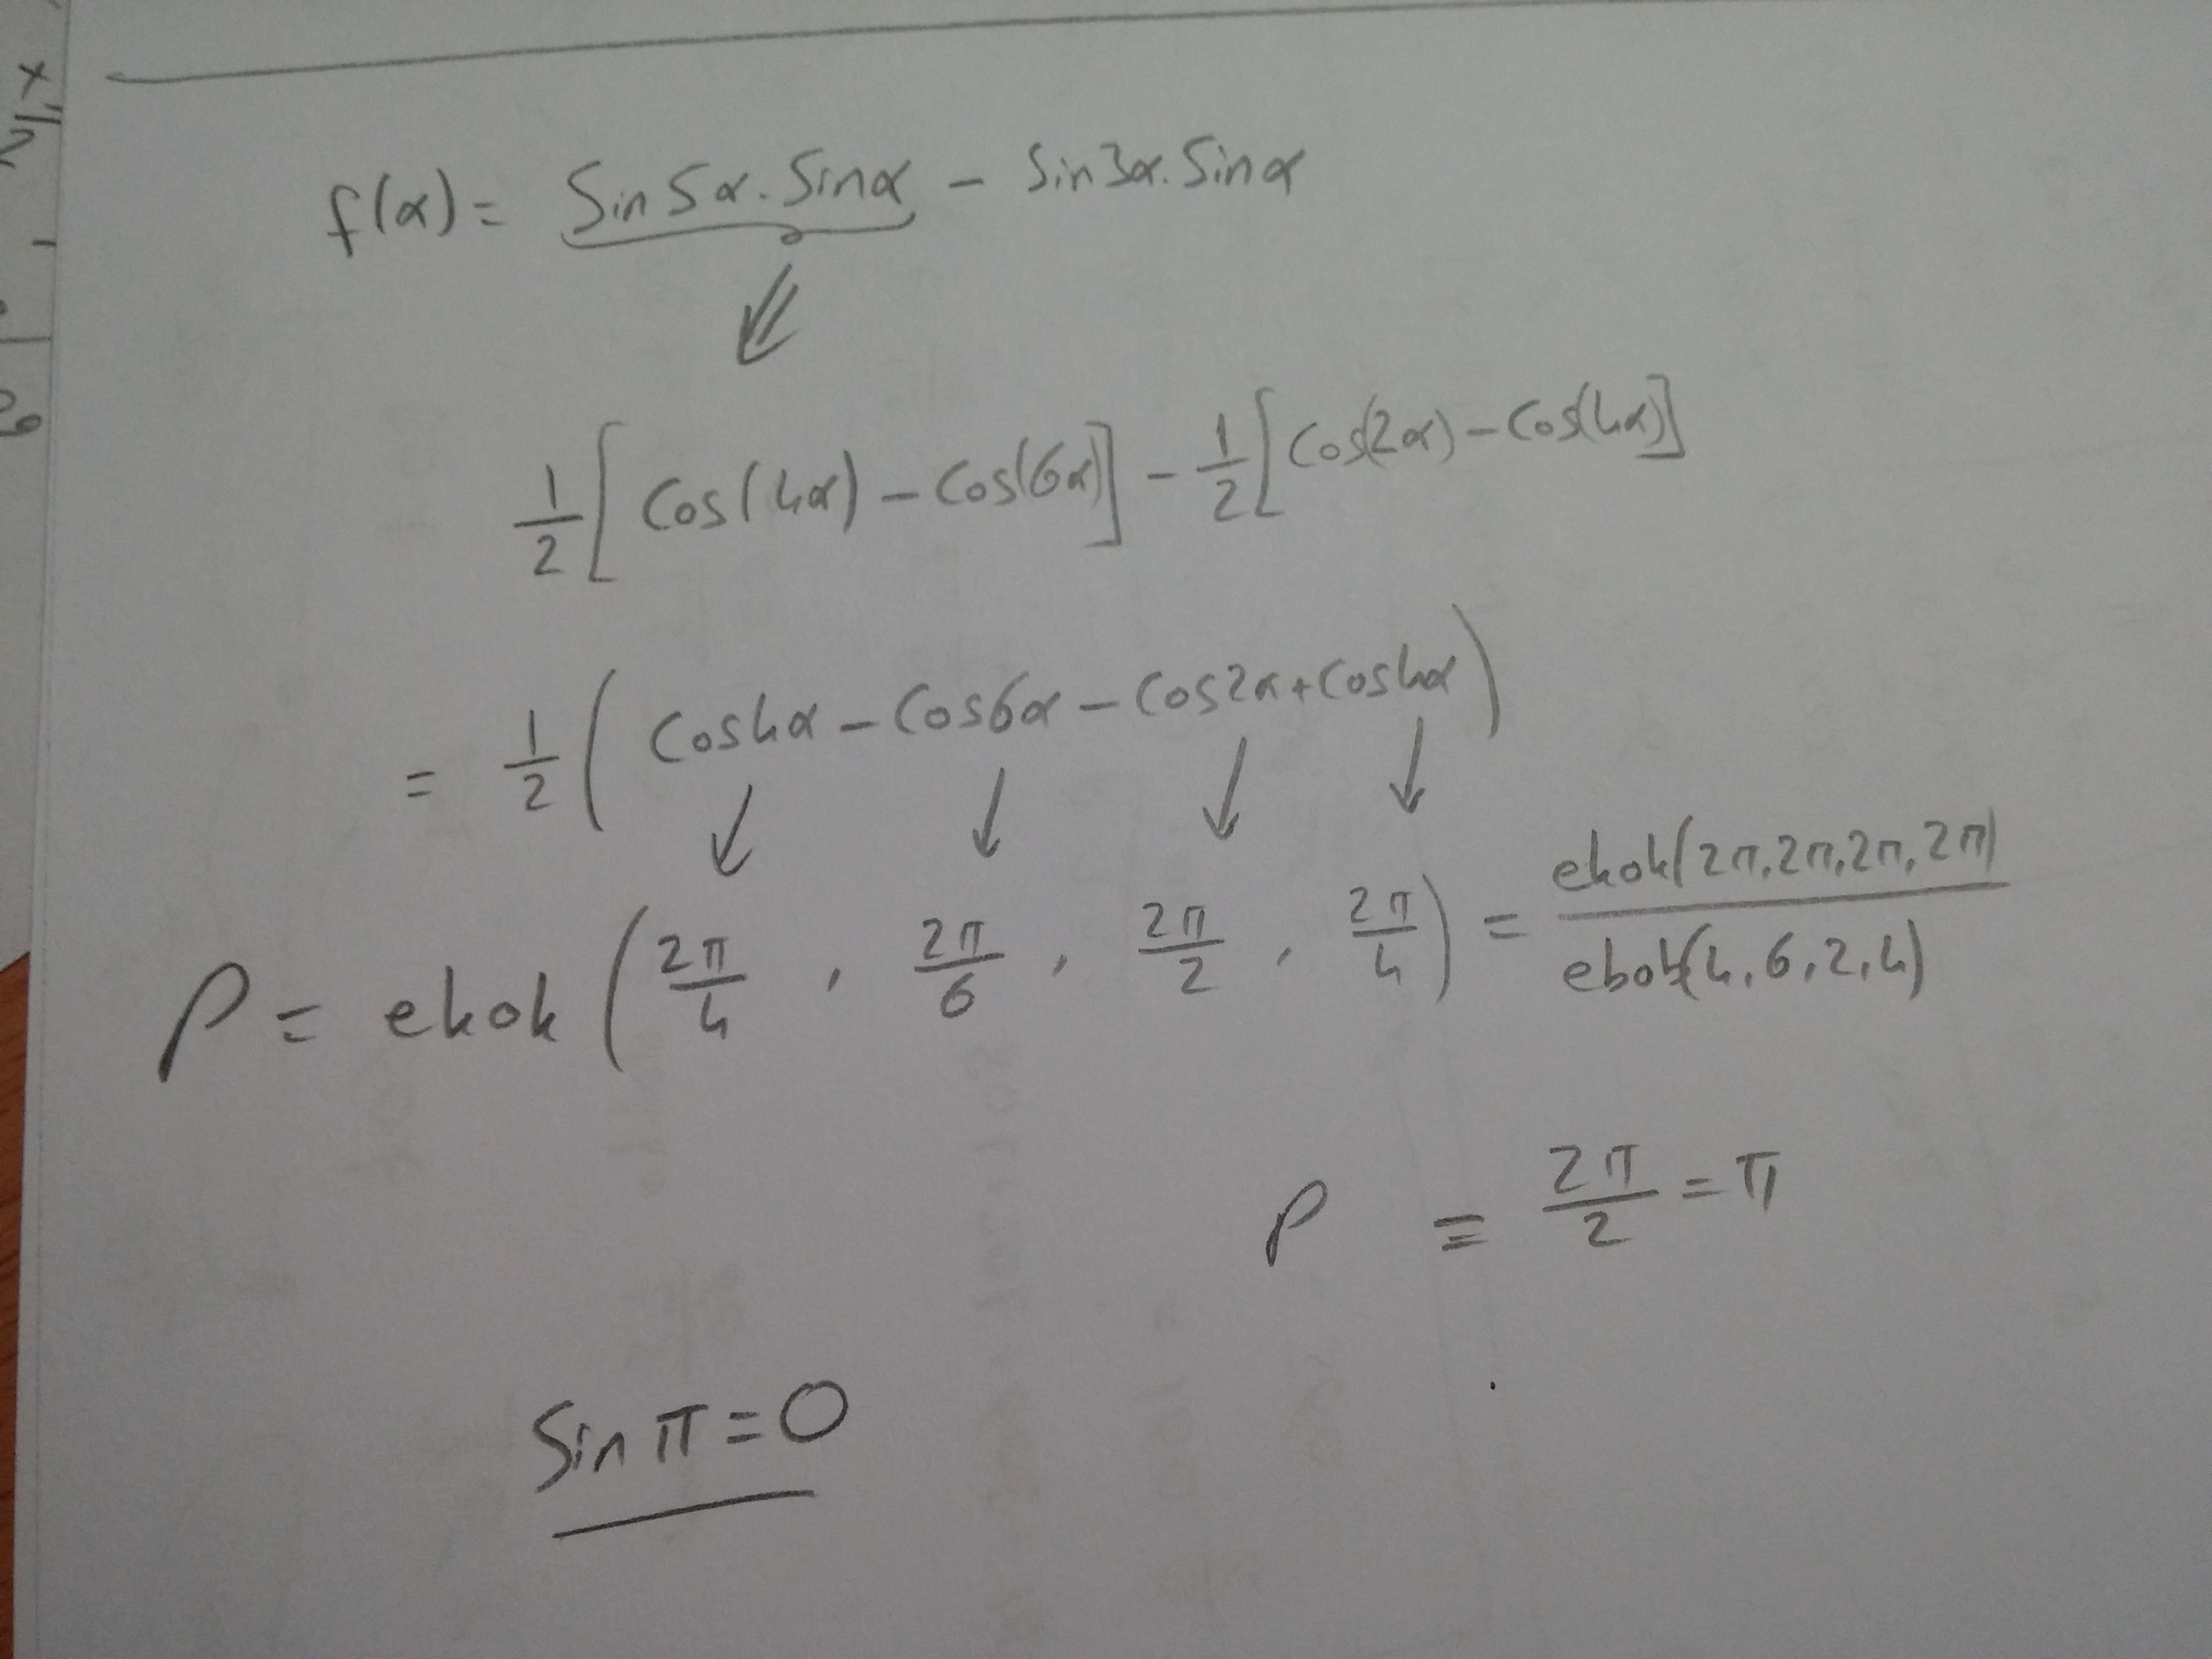 f(α) = Sin5α . Sinα − Sin3α . Sinα
1/2 [Cos(4α) − Cos(6α)] − 1/2 [Cos(2α) − Cos(4α)]
= 1/2 (Cos4α − Cos6α − Cos2α + Cos4α)
P = ekok (2π/4 , 2π/6 , 2π/2 , 2π/4) = ekok(2π, 2π, 2π, 2π) / ebob(4, 6, 2, 4)
P = 2π/2 = π
Sin π = 0